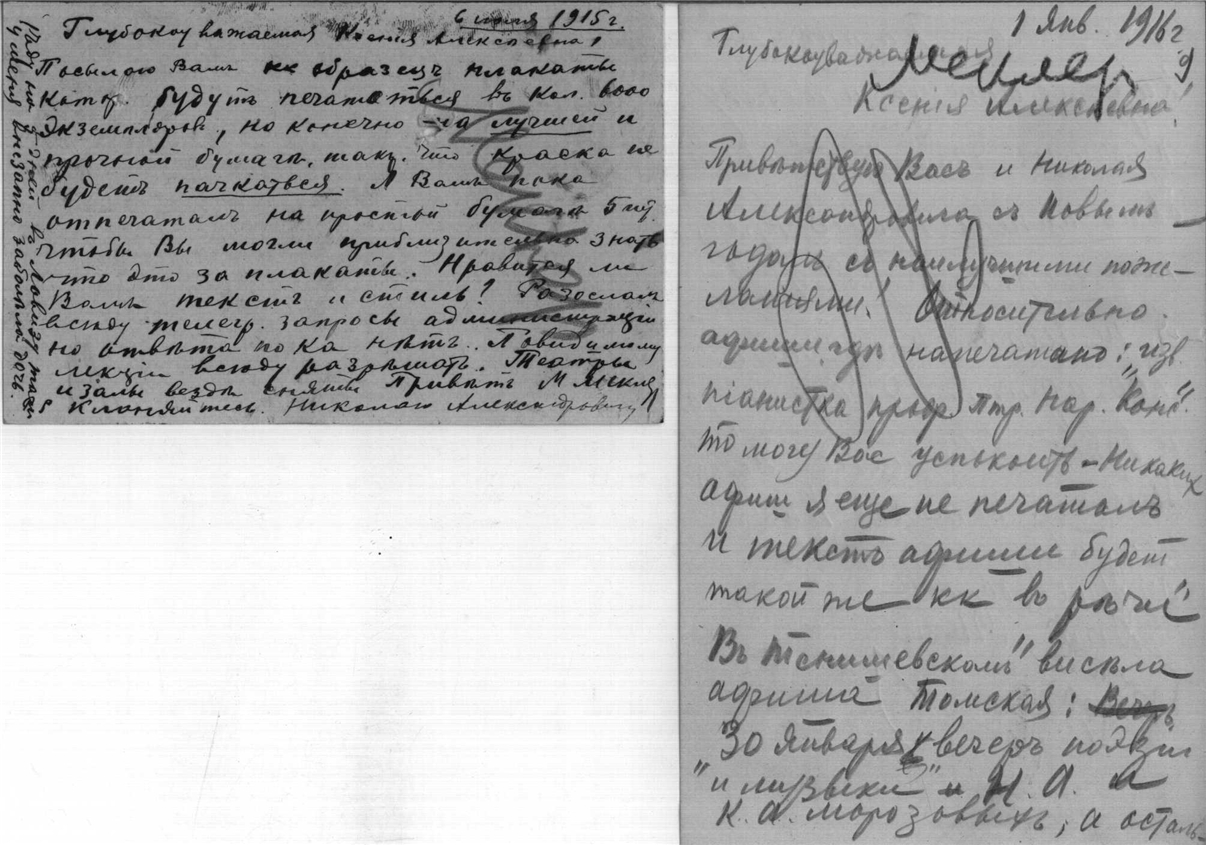 6 июня 1915 г.
Глубокоуважаемая Ксенія Алексѣевна!
Посылаю Вамъ кк образецъ плакаты
котр. будутъ печататься въ кол. 6000
экземпляров, но конечно – на лучшей и
прочной бумагѣ, такъ что краска не
будетъ пачкаться. Я Вамъ пока
отпечаталъ на простой бумагѣ 5 шт.
чтобы Вы могли приблизительно знать
что это за плакаты. Нравится ли
Вамъ текстъ и стиль? Разослалъ
всюду телегр. запросы администраціи
но отвѣта пока нѣтъ. Повидимому
лекціи всюду разрѣшатъ. Театры
и залы вездѣ сняты Привѣтъ М Меклер
Кланяйтесь Николаю Александровичу
у меня внезапно заболѣла дочь.
1 Янв. 1916 г
9
Глубокоуважаемая
Меклер
Ксенія Алексѣевна!
Привѣтствую Васъ и Николая
Александровича съ Новымъ
годомъ съ наилучшими поже-
ланіями! Относительно
афиши, гдѣ напечатано: "изв.
піанистка проф. Птр. Нар. Конс".
то могу Вас успокоить – Никаких
афиш я еще не печаталъ
и текстъ афиши будет
такой же кк въ рѣчи
Въ Тенишевскомъ" висѣла
афиша Томская:
"30 Января вечеръ поэзіи
"и музыки" Н. А. и
К. А. Морозовыхъ, а осталь-